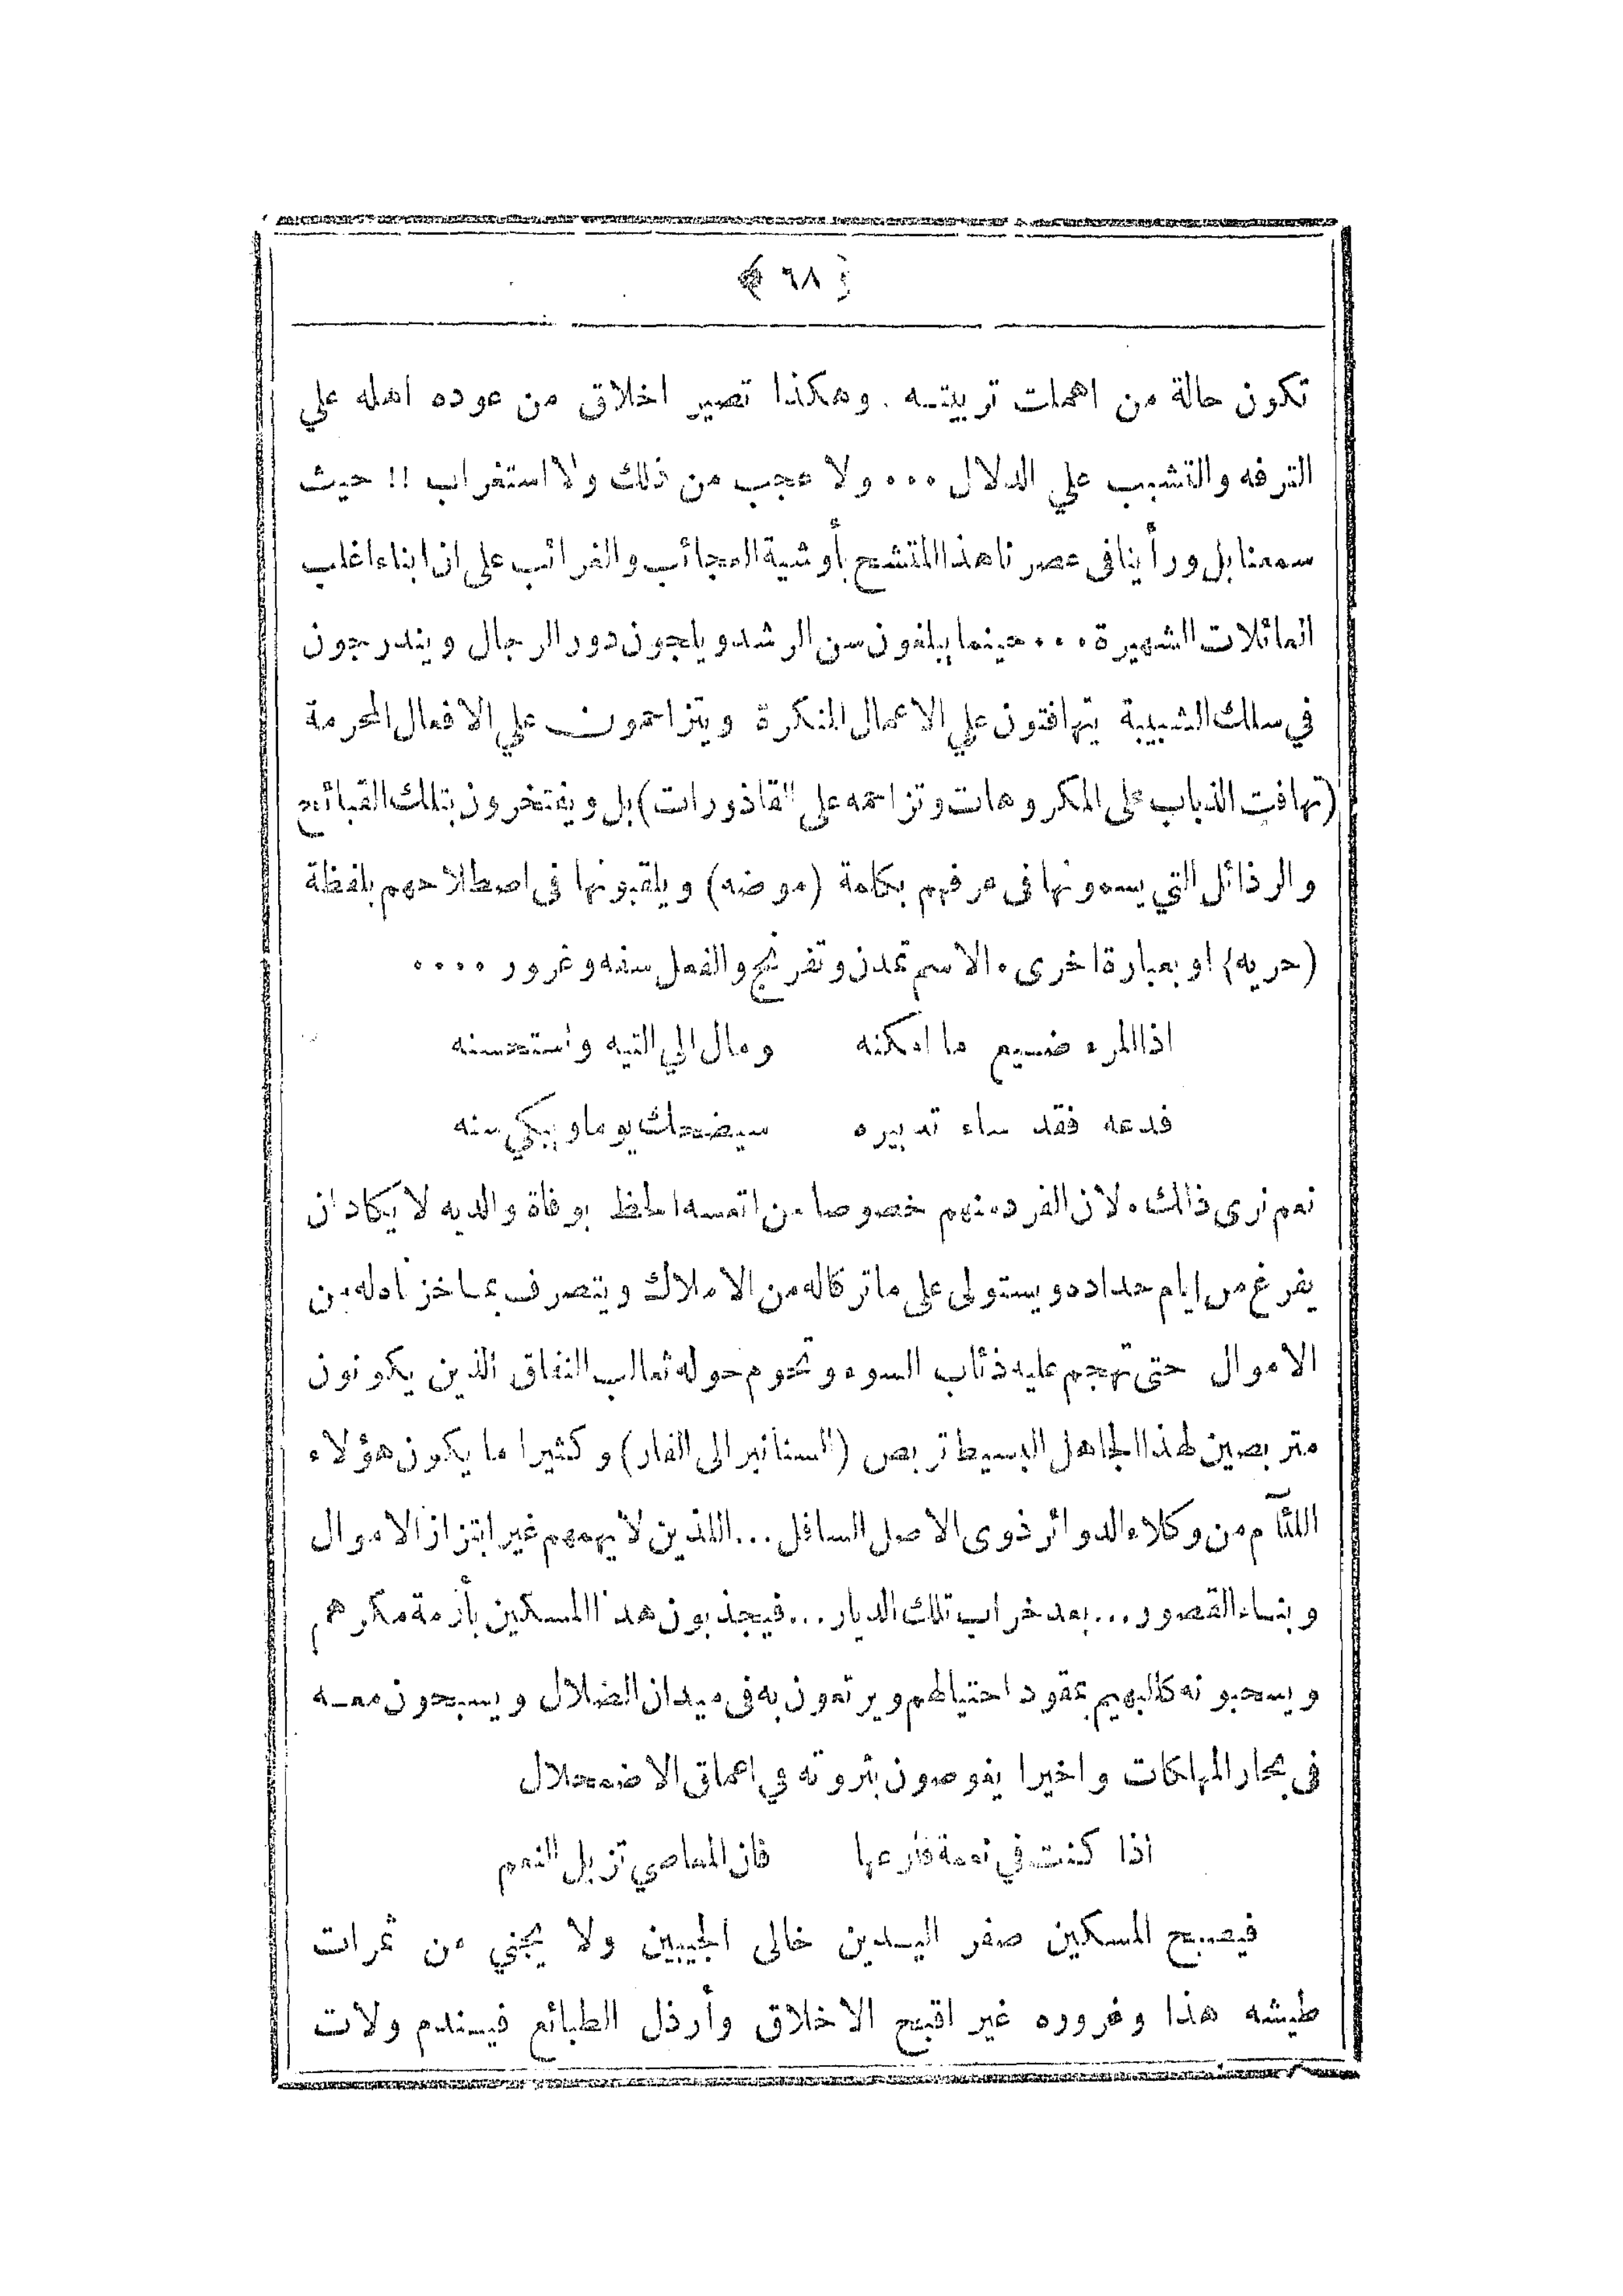 ﴿ ٦٨ ﴾
تكون حالة من اهملت تربيته . وهكذا تصير اخلاق من عوده اهله علي
الترفه والتشبب علي الدلال ٠٠٠ ولا عجب من ذلك ولا استغراب !! حيث
سمعنا بل ورأينا في عصرنا هذا المتشح بأوشية العجائب والغرائب على ان ابناء اغلب
العائلات الشهيرة ٠٠٠ حينما يبلغون سن الرشد ويلجون دور الرجال ويندرجون
في سلك الشبيبة يتهافتون علي الاعمال المنكرة ويتزاحمون علي الافعال المحرمة
(تهافت الذباب على المكروهات وتزاحمه على القاذورات) بل ويفتخرون بتلك القبائح
والرذائل التي يسمونها فى عرفهم بكلمة (موضه) ويلقبونها فى اصطلاحهم بلفظة
(حريه) او بعبارة اخرى ٠ الاسم تمدن وتفرنج والفعل سفه وغرور ٠٠٠٠
اذا المرء ضيع ما امكنه ومال الي التيه واستحسنه
فدعه فقد ساء تدبيره سيضحك يوما ويبكي سنه
نعم نرى ذالك ٠ لان الفرد منهم خصوصا من اتعسه الحظ بوفاة والديه لا يكاد ان
يفرغ من ايام حداده ويستولى على ما تركا له من الاملاك ويتصرف بما خزنا له من
الاموال حتى تهجم عليه ذئاب السوء وتحوم حوله ثعالب النفاق الذين يكونون
متربصين لهذا الجاهل البسيط تربص (السنانير الى الفار) وكثيرا ما يكون هؤلاء
اللئآم من وكلاء الدوائر ذوى الاصل السافل ... اللذين لا يهمهم غير ابتزاز الاموال
وبناء القصور ... بعد خراب تلك الديار ... فيجذبون هذا المسكين بأزمة مكرهم
ويسحبونه كالبهيم بمقود احتيالهم ويرتعون به فى ميدان الضلال ويسبحون معه
فى بحار المهلكات واخيرا يغوصون بثروته في اعماق الاضمحلال
اذا كنت في نعمة فارعها فان المعاصي تزيل النعم
فيصبح المسكين صفر اليدين خالى الجيبين ولا يجني من ثمرات
طيشه هذا وغروره غير اقبح الاخلاق وأرذل الطبائع فيندم ولات